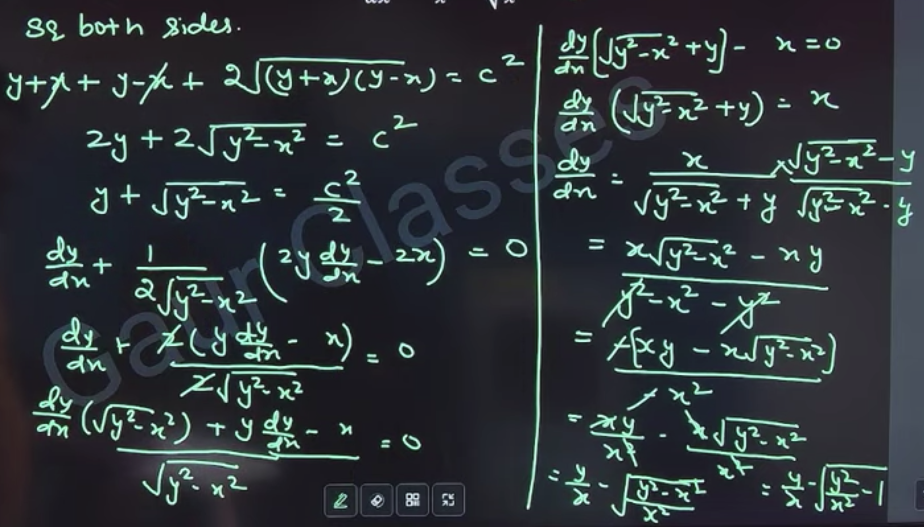 sq both sides.
y+x + y-x + 2√((y+x)(y-x)) = c²
2y + 2√(y²-x²) = c²
y + √(y²-x²) = c²/2
dy/dx + 1/(2√(y²-x²)) (2y dy/dx - 2x) = 0
dy/dx + 2(y dy/dx - x)/(2√(y²-x²)) = 0
(dy/dx (√(y²-x²)) + y dy/dx - x)/√(y²-x²) = 0
dy/dx [√(y²-x²) + y] - x = 0
dy/dx (√(y²-x²) + y) = x
dy/dx = x/(√(y²-x²) + y) × (√(y²-x²) - y)/(√(y²-x²) - y)
= (x√(y²-x²) - xy)/(y²-x²-y²)
= -[xy - x√(y²-x²)]/(-x²)
= xy/x² - x√(y²-x²)/x²
= y/x - √((y²-x²)/x²) = y/x - √(y²/x² - 1)
Gaur Classes